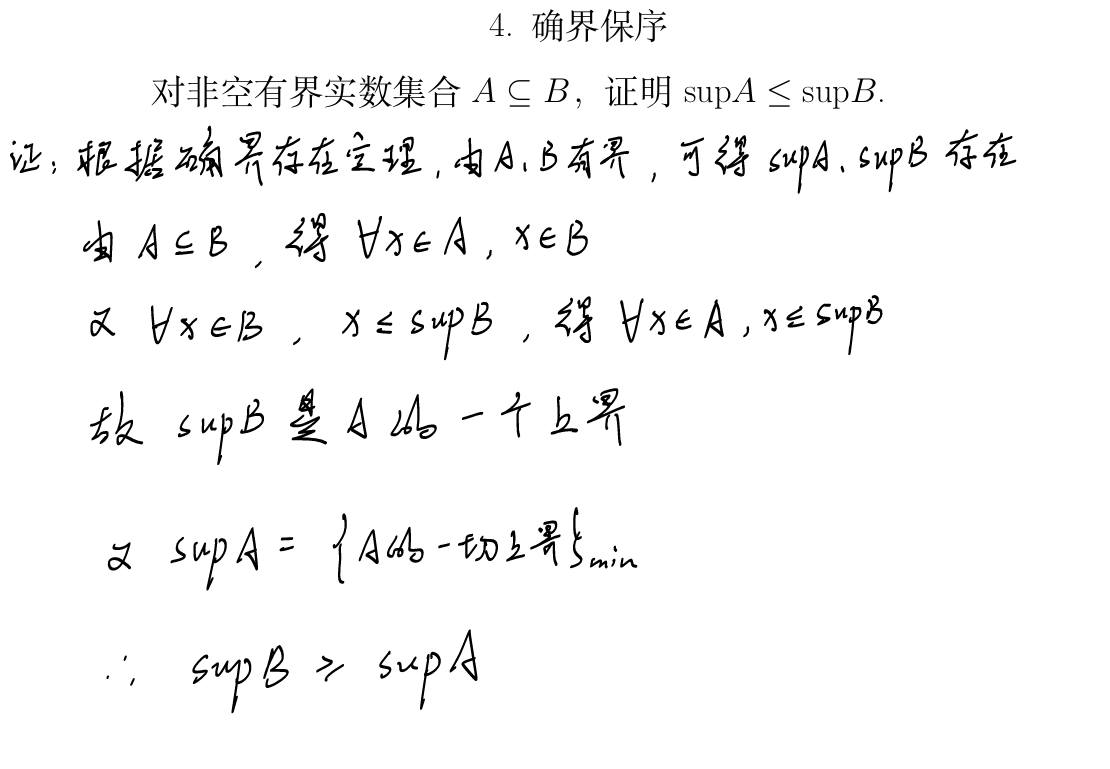 4. 确界保序
对非空有界实数集合 A ⊆ B, 证明 supA ≤ supB.
证: 根据确界存在定理, 由 A、B 有界, 可得 supA、supB 存在
由 A ⊆ B, 得 ∀x∈A, x∈B
又 ∀x∈B, x ≤ supB, 得 ∀x∈A, x ≤ supB
故 supB 是 A 的一个上界
又 supA = {A的一切上界}min
∴ supB ≥ supA